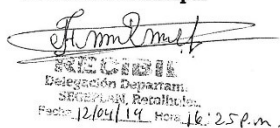 RECIBI
Delegación Departam.
SEGEPLAN, Retalhuleu
Fecha 12/04/14 Hora 16:25 p.m.